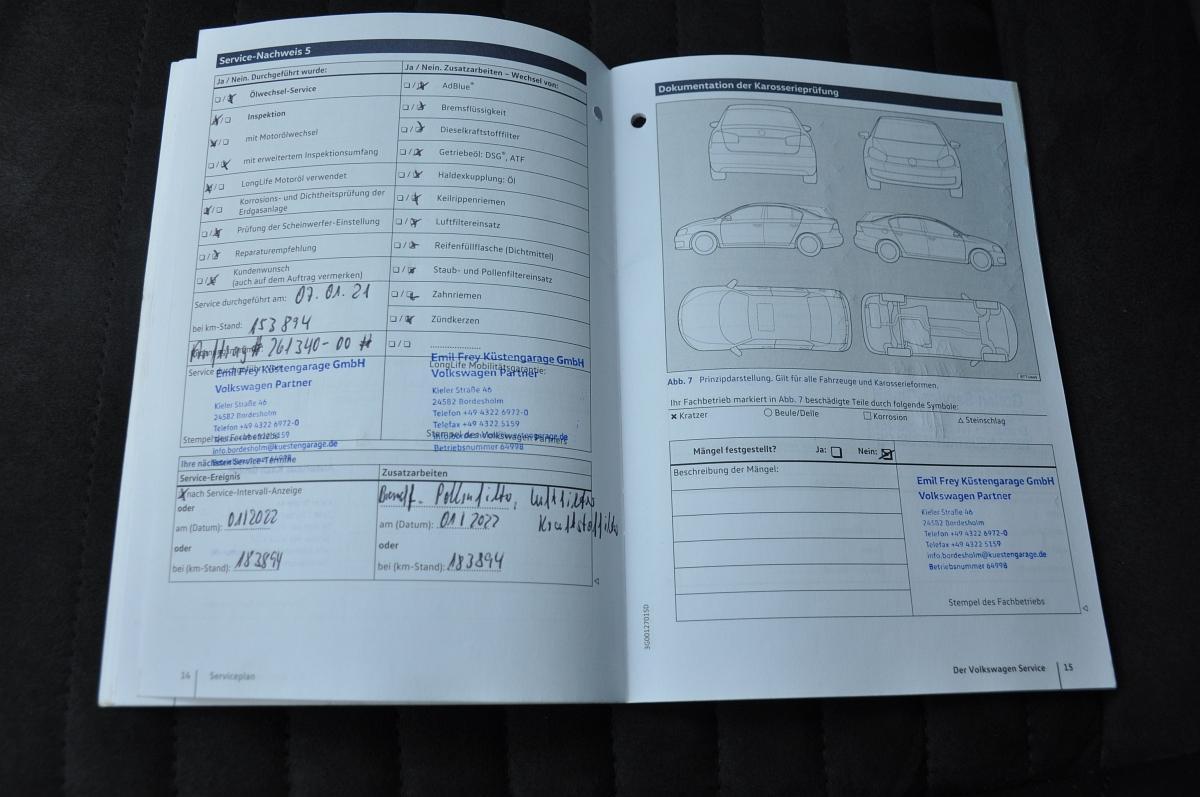 Service-Nachweis 5
Ja / Nein. Durchgeführt wurde:
Ölwechsel-Service
Inspektion
mit Motorölwechsel
mit erweitertem Inspektionsumfang
LongLife Motoröl verwendet
Korrosions- und Dichtheitsprüfung der
Erdgasanlage
Prüfung der Scheinwerfer-Einstellung
Reparaturempfehlung
Kundenwunsch
(auch auf dem Auftrag vermerken)
Service durchgeführt am: 07.01.21
bei km-Stand: 153894
261340-00 #
Service durchgeführt
Emil Frey Küstengarage GmbH
Volkswagen Partner
Kieler Straße 46
24582 Bordesholm
Telefon +49 4322 6972-0
Stempel des Fachbetriebs
info.bordesholm@kuestengarage.de
Ja / Nein. Zusatzarbeiten – Wechsel von:
AdBlue®
Bremsflüssigkeit
Dieselkraftstofffilter
Getriebeöl: DSG®, ATF
Haldexkupplung: Öl
Keilrippenriemen
Luftfiltereinsatz
Reifenfüllflasche (Dichtmittel)
Staub- und Pollenfiltereinsatz
Zahnriemen
Zündkerzen
Emil Frey Küstengarage GmbH
LongLife Mobilitätsgarantie:
Volkswagen Partner
Kieler Straße 46
24582 Bordesholm
Telefon +49 4322 6972-0
Telefax +49 4322 5159
Stempel des Volkswagen Partners
Betriebsnummer 64998
Ihre nächsten Service-Termine
Service-Ereignis
nach Service-Intervall-Anzeige
oder
am (Datum): 01/2022
oder
bei (km-Stand): 183894
Zusatzarbeiten
Pollenfilter, Luftfilter
Kraftstofffilter
am (Datum): 01/2022
oder
bei (km-Stand): 183894
14 Serviceplan
Dokumentation der Karosserieprüfung
Abb. 7 Prinzipdarstellung. Gilt für alle Fahrzeuge und Karosserieformen.
Ihr Fachbetrieb markiert in Abb. 7 beschädigte Teile durch folgende Symbole:
× Kratzer ○ Beule/Delle □ Korrosion △ Steinschlag
Mängel festgestellt? Ja: Nein:
Beschreibung der Mängel:
Emil Frey Küstengarage GmbH
Volkswagen Partner
Kieler Straße 46
24582 Bordesholm
Telefon +49 4322 6972-0
Telefax +49 4322 5159
info.bordesholm@kuestengarage.de
Betriebsnummer 64998
Stempel des Fachbetriebs
3G0012701SD
Der Volkswagen Service 15